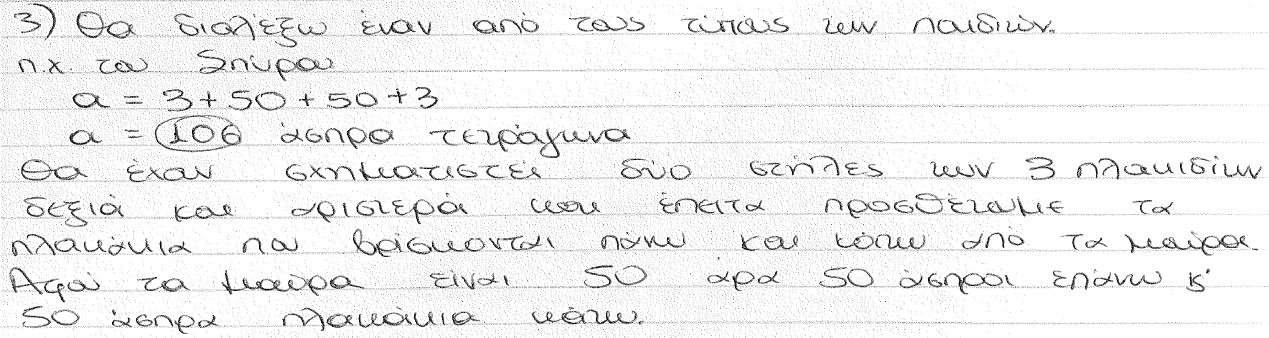 3) Θα διαλέξω έναν από τους τύπους των παιδιών.
π.χ. του Σπύρου
α = 3+50+50+3
α = 106 άσπρα τετράγωνα
Θα έχουν σχηματιστεί δύο στήλες των 3 πλακιδίων
δεξιά και αριστερά και έπειτα προσθέτουμε τα
πλακάκια που βρίσκονται πάνω και κάτω από τα μαύρα.
Αφού τα μαύρα είναι 50 άρα 50 άσπρα επάνω κ'
50 άσπρα πλακάκια κάτω.